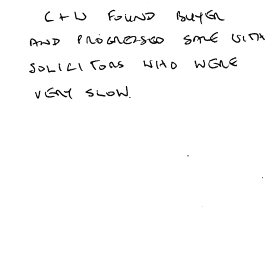 C+W FOUND BUYER
AND PROGRESSED SALE WITH
SOLICITORS WHO WERE
VERY SLOW.